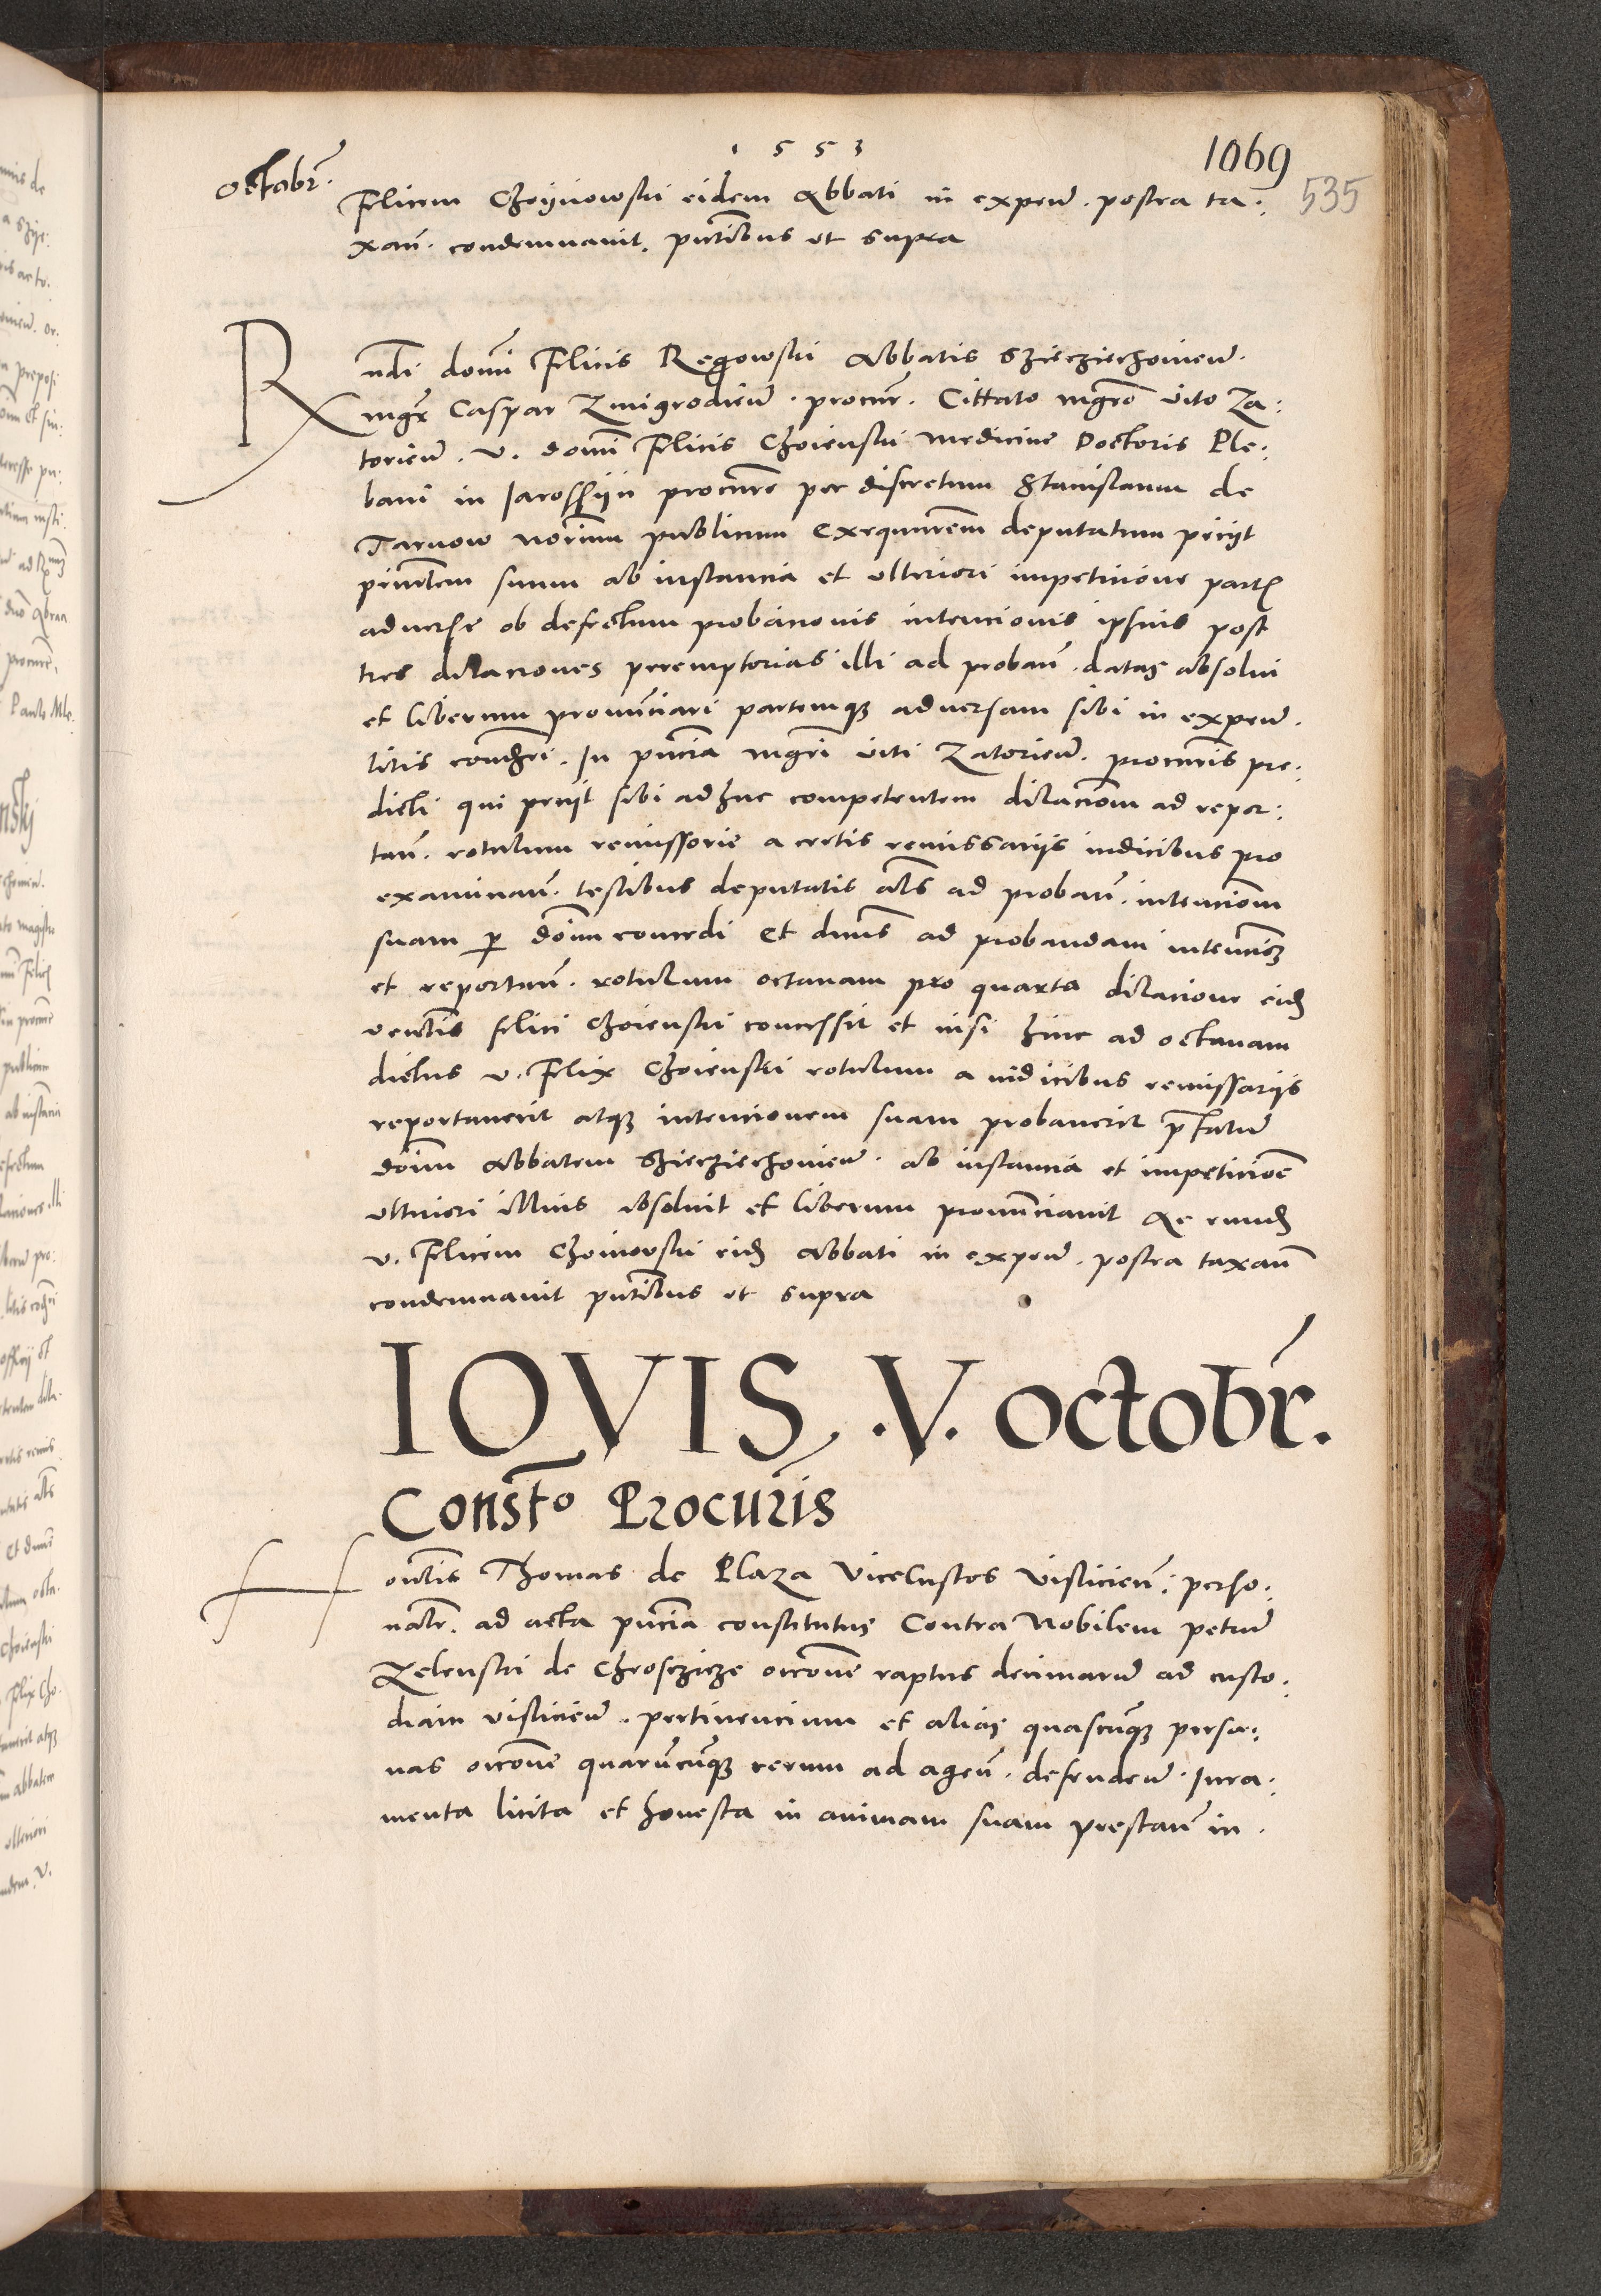 1 5 5 3
1069
535
Octobr̃.
Felicem Choynowski eidem Abbati in expeñ. postea ta:
xañ. condemnavit. pñtibus ut supra
Rñdi domi Felicis Regowski Abbatis Sziecziechovieñ.
mgr̃ Caspar Zmigrodieñ. procur̃. Cittato mgrõ Vito Za:
torieñ. V. domi Felicis Choienski Medicine Doctoris Ple:
bani in Jarosszyn procurẽ per discretum Stanislaum de
Tarnow notrium publicum exequutrem deputatum petyt
prinlem suum ab instancia et ulteriori impeticione partĩs
adverse ob defectum probacionis intencionis ipsius post
tres dilaciones peremptorias illi ad probañ. datas absolui
et liberum pronũnciari partemq3 adversam sibi in expeñ.
litis condem̃ri. In pñcia mgri Viti Zatorieñ. procuris pre:
dicti qui petyt sibi adhuc competentem dilacionm ad repor:
tañ. rotulum remissorie a certis remissariis iudicibus pro
examinañ. testibus deputatis als ad probañ. intencionm
suam p dom̃m concedi Et dnus ad probandam intencio3
et reportañ. rotulum octavam pro quarta dilacione eid
venlis Felici Choienski concessit et nisi hinc ad octavam
dictus V. Felix Choienski rotulum a iudicibus remissariis
reportaverit atq3 intencionem suam probaverit p̃fatum
dom̃m Abbatem Sziecziechovieñ. ab instancia et impeticioẽ
ulteriori illius absoluit et liberum pronũnciavit Ac eund
V. Felicem Choinowski eid Abbati in expeñ. postea taxañ
condemnavit pñtibus ut supra
IOVIS .V. octobr̃.
Const̃o Procuris
Honlis Thomas de Plaza Vicecustos Vislicieñ: perso:
nalr̃. ad acta pñcia constitutus Contra Nobilem petrum
Zelenski de Chrosczicze occone raptus decimarum ad custo:
diam Visliciеñ. pertinencium et alias quascũq3 perso:
nas occone quarũcũq3 rerum ad ageñ. defendeñ. Jura:
menta licita et honesta in animam suam prestañ in.